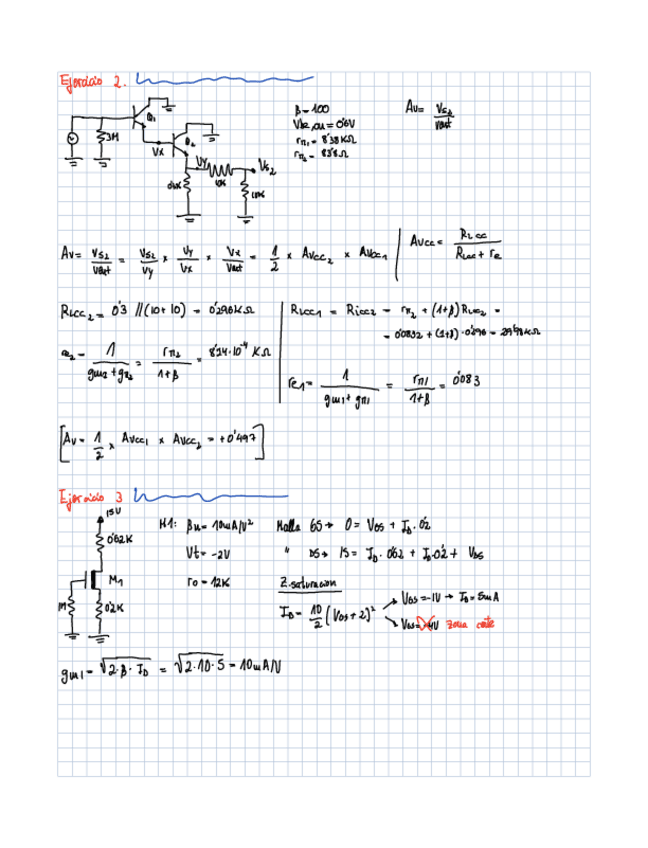 Ejercicio 2.
Q1
3M
Vx
Q2
Vy
10K
Vs2
10K
β = 100
Vbe,on = 0'6V
rπ1 = 8'38 KΩ
rπ2 = 83'8 Ω
Av = Vs2 / Vart
Av = Vs2 / Vart = Vs2 / Vy × Vy / Vx × Vx / Vart = 1/2 × Avcc2 × Avcc1
Avcc = RLcc / (RLcc + re)
RLcc2 = 0'3 // (10 + 10) = 0'296KΩ
RLcc1 = Ricc2 = rπ2 + (1+β) RLcc2 =
= 0'0832 + (1+β) · 0'296 = 29'98KΩ
re2 = 1 / (gm2 + gπ2) = rπ2 / (1+β) = 8'24·10⁻⁴ KΩ
re1 = 1 / (gm1 + gπ1) = rπ1 / (1+β) = 0'083
[Av = 1/2 × Avcc1 × Avcc2 = +0'497]
Ejercicio 3
15V
0'62K
M1
0'2K
M1: βn = 10mA/V²
Vt = -2V
ro = 12K
Malla GS → 0 = VGS + ID · 0'2
" DS → 15 = ID · 0'62 + ID·0'2 + VDS
Z. saturacion
ID = 10/2 (VGS + 2)²
→ VGS = -1V → ID = 5mA
→ VGS = -4V Zona corte
gm1 = √(2·β·ID) = √(2·10·5) = 10mA/V